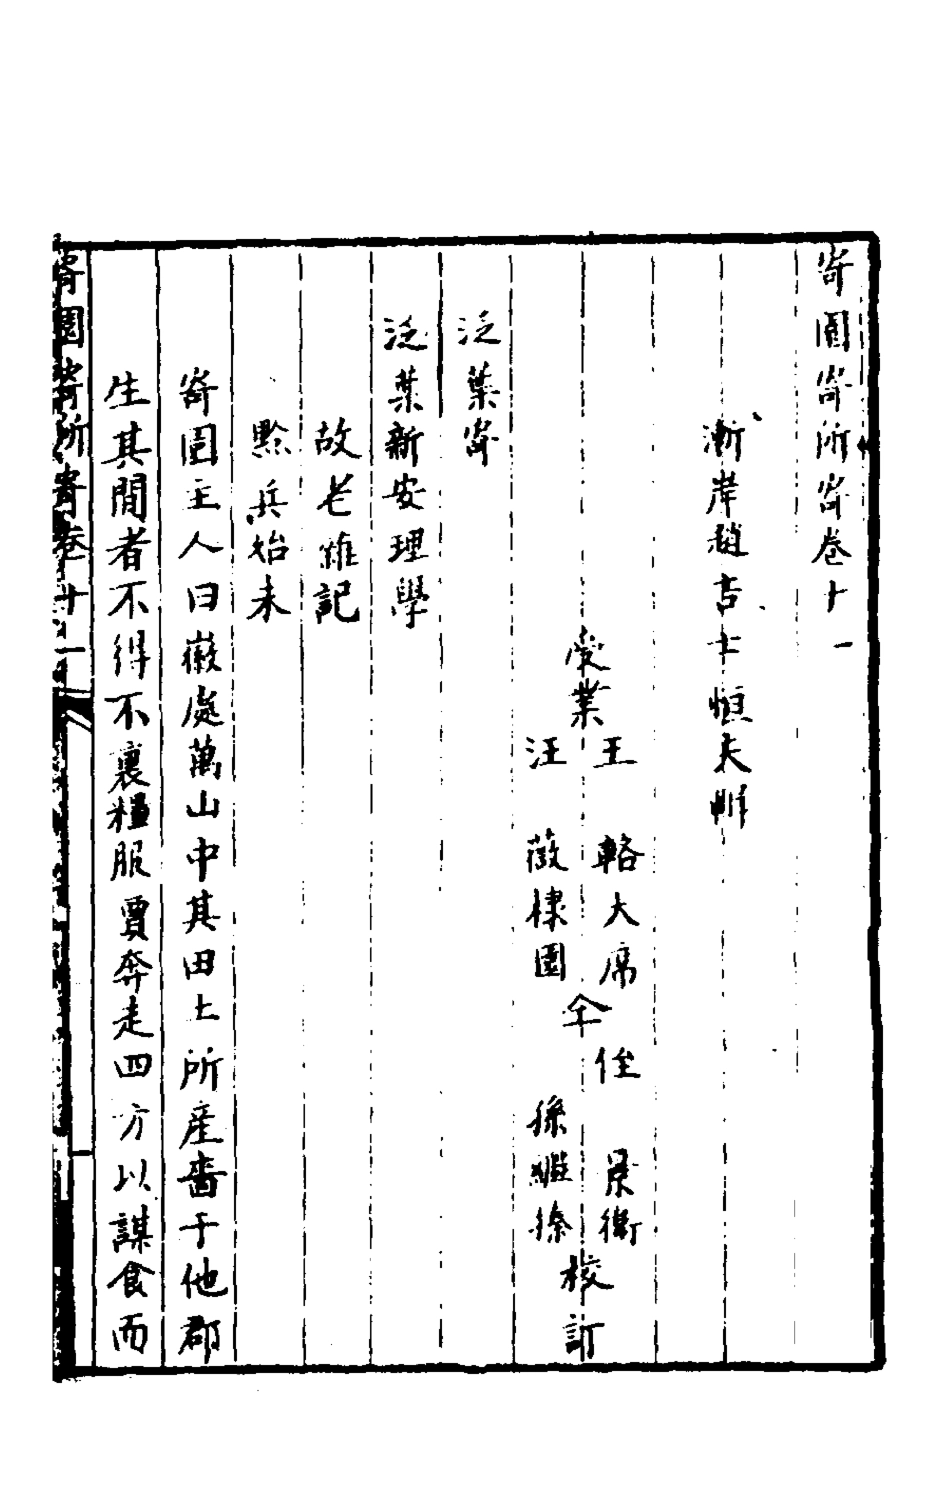 寄園寄所寄卷十一
漸岸趙吉士恒夫輯
受業
王 輅大席
汪 薇棣園
仝
侄 景衡
孫繼搽
校訂
泛葉寄
泛葉新安理學
故老雜記
黟兵始末
寄園主人曰徽處萬山中其田土所産嗇于他郡
生其間者不得不裹糧服賈奔走四方以謀食而
寄園寄所寄卷十一